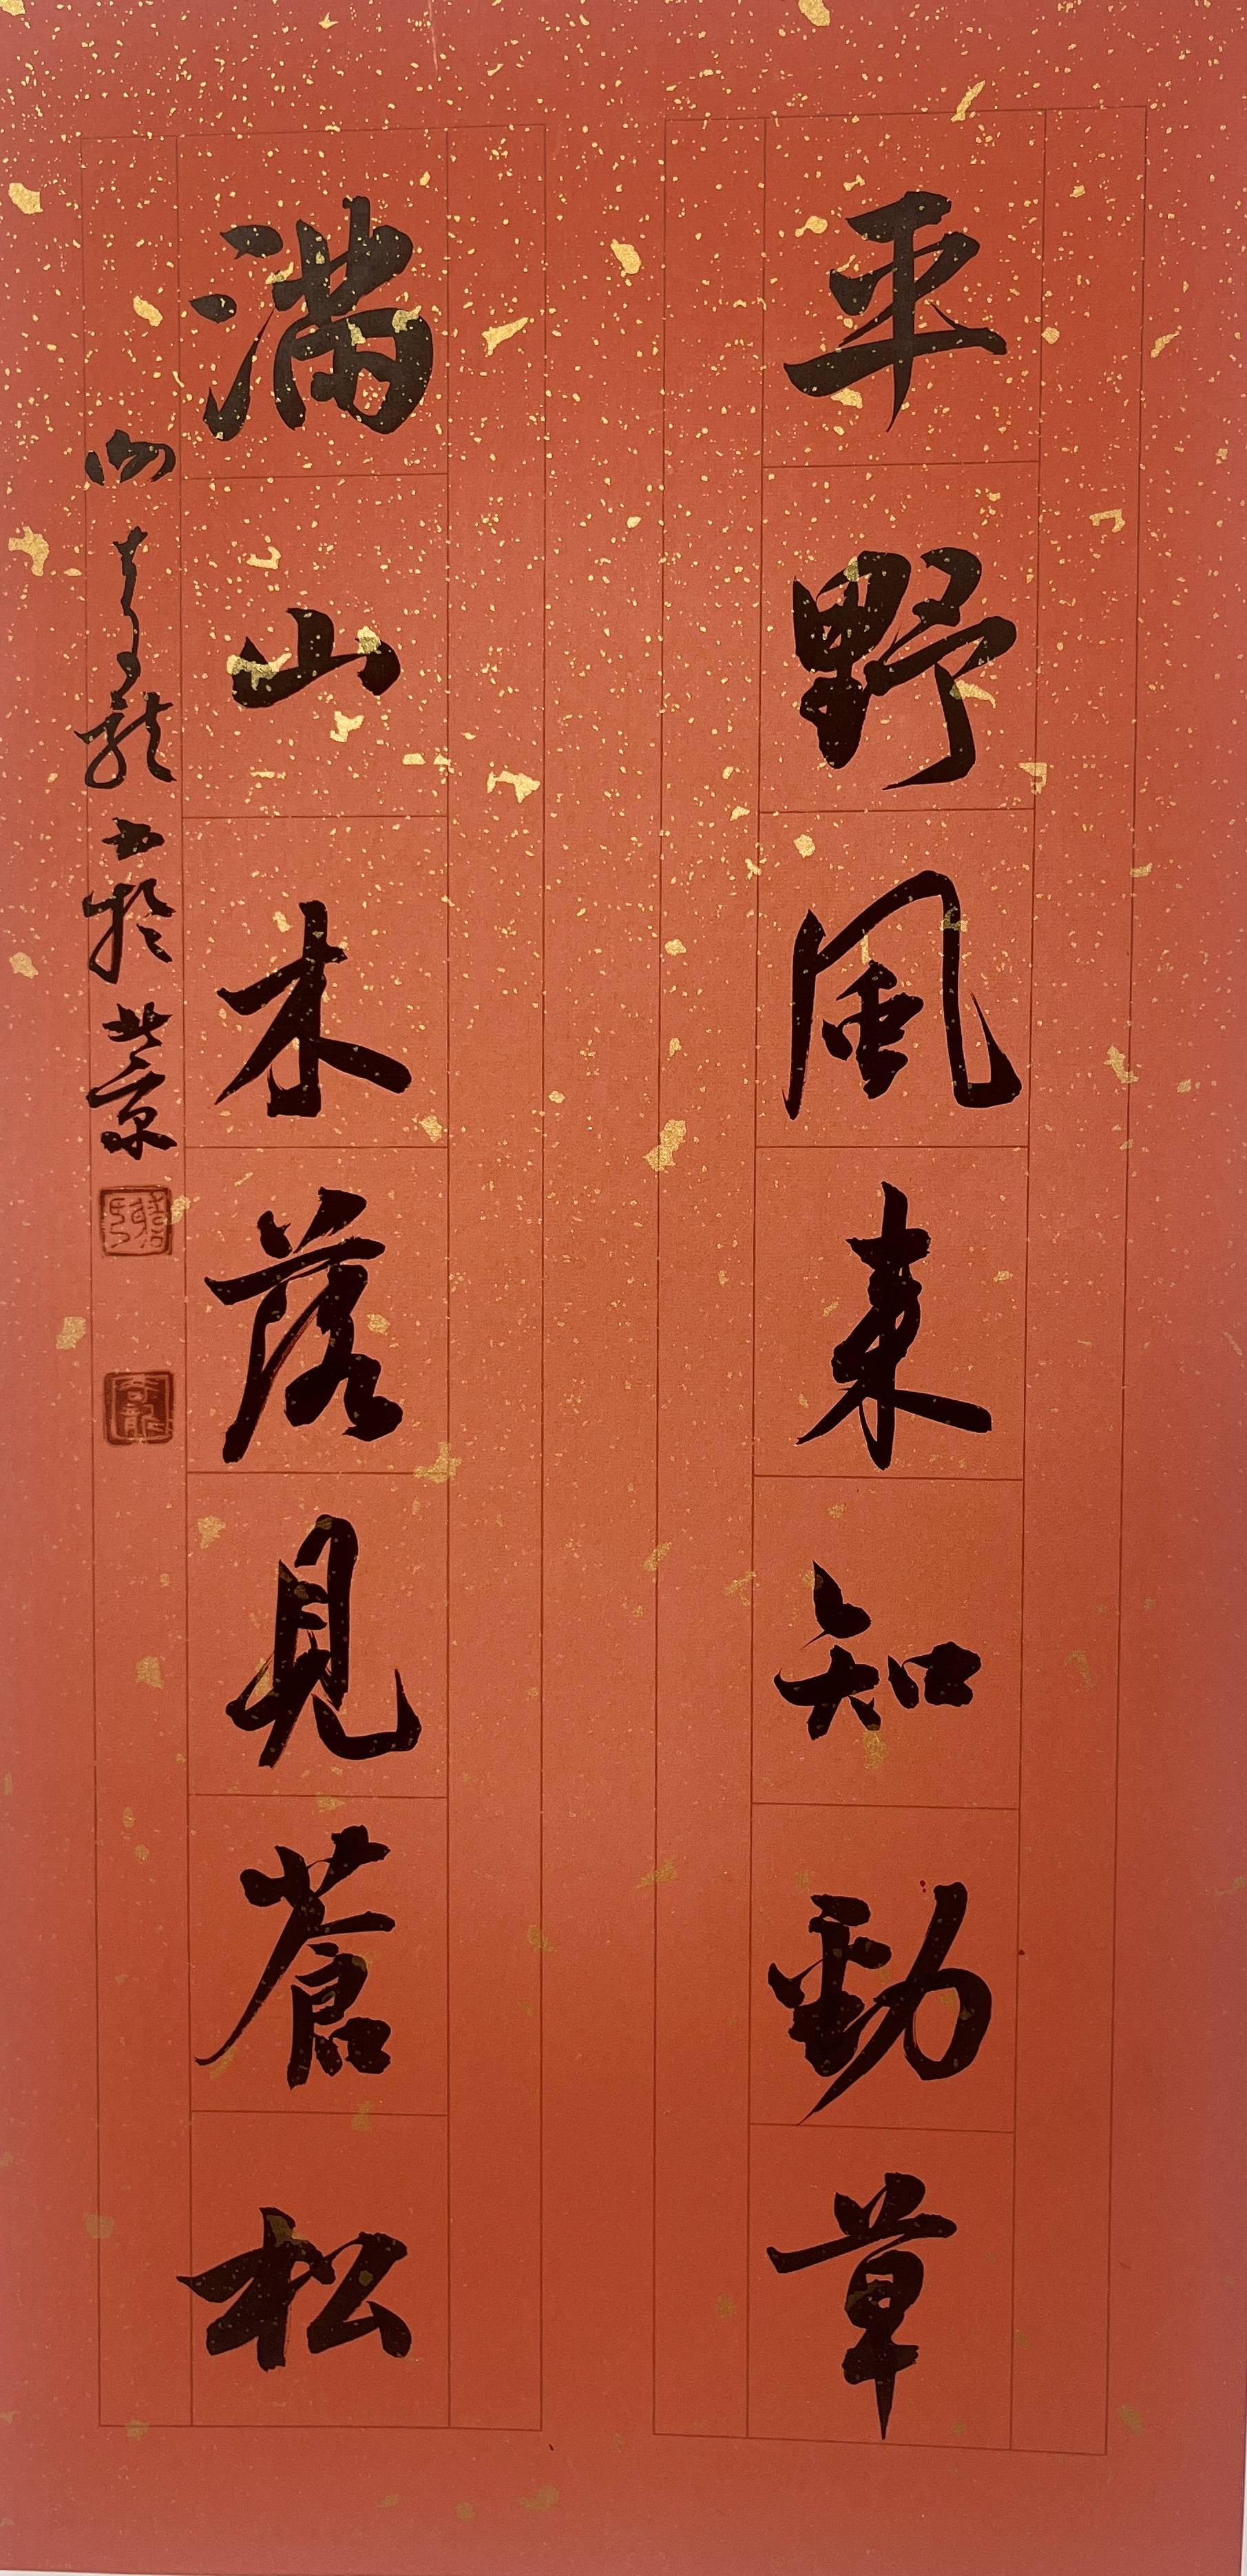 平野風来知勁草
満山木落見蒼松
書於北京